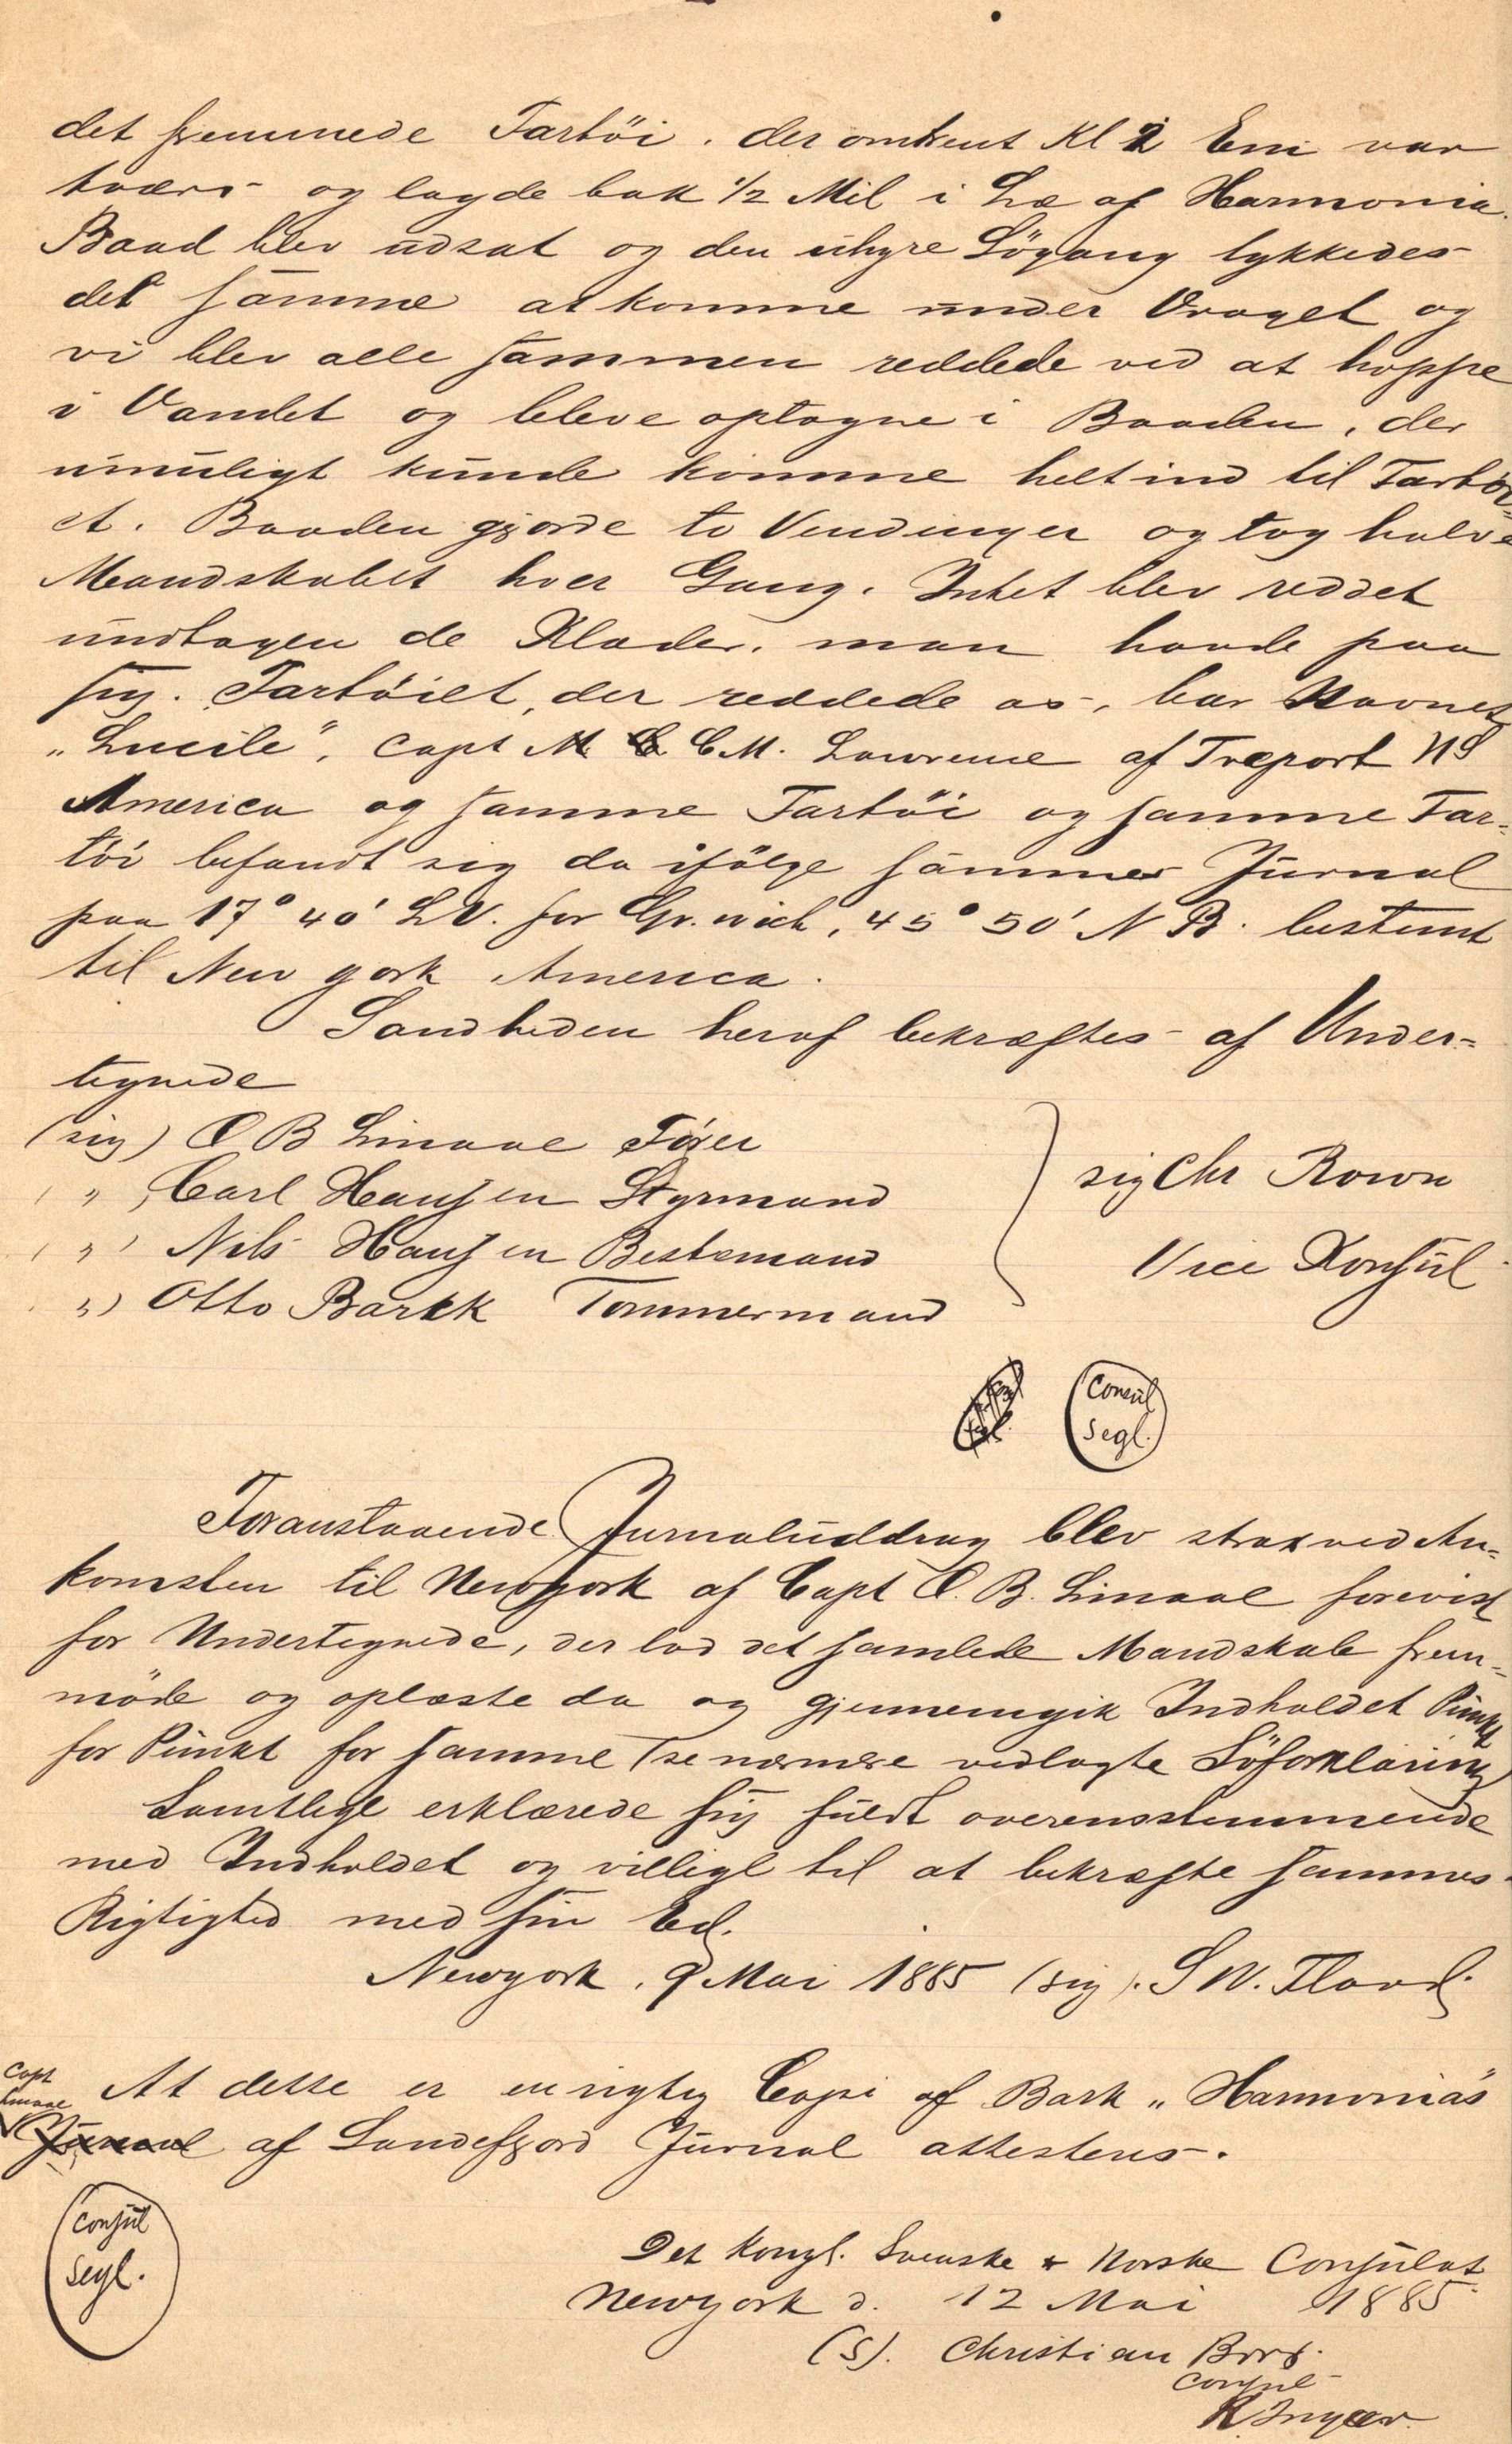 det fremmede Fartöi. der omtrent Kl 2 Em var
tværs og lagde bak 1/2 Mil i Læ af Harmonia.
Baad blev udsat og den uhyre Sögang lykkedes
det samme at komme under Vraget og
vi blev alle sammen reddede ved at hoppe
i Vandet og bleve optagne i Baaden, der
umuligt kunde komme helt ind til Fartöi-
et. Baaden gjorde to Vendinger og tog halve
Mandskabet hver Gang. Intet blev reddet
undtagen de Klæder, man havde paa
sig. Fartöiet, der reddede os, bar Navnet
„Lucile", Capt C M. Lawrence af Treport NS
America og samme Fartöi og samme Far-
töi befandt sig da ifölge sammes Jurnal
paa 17° 40' L V. for Gr.wich, 45° 50' N B. bestemt
til New york America.
Sandheden heraf bekræftes af Under-
tegnede
(sig) O B Linaae Förer
( " ) Carl Hansen Styrmand
( " ) Nils Hansen Bestemand
( " ) Otto Barkk Tømmermand
sig Chr Rown
Vice Konsul
Consul
Segl.
Foranstaaende Jurnaluddrag blev strax ved An-
komsten til Newyork af Capt O. B. Linaae forevist
for Undertegnede, der lod det samlede Mandskab frem-
møde og oplæste da og gjennemgik Indholdet Punkt
for Punkt for samme (se nærmere vedlagte Söforklaring)
Samtlige erklærede sig fuldt overensstemmende
med Indholdet og villige til at bekræfte sammes
Rigtighed med sin Ed.
Newyork, 9 Mai 1885 (sig). S W. Flood.
Capt
Linaae
At dette er en rigtig Copi af Bark „Harmonia's
Jurnal af Sandefjord Jurnal attesteres.
Consul
Segl.
Det Kongl. Svenske & Norske Consulat
Newyork d. 12 Mai 1885
(S). Christian Börs.
Consul